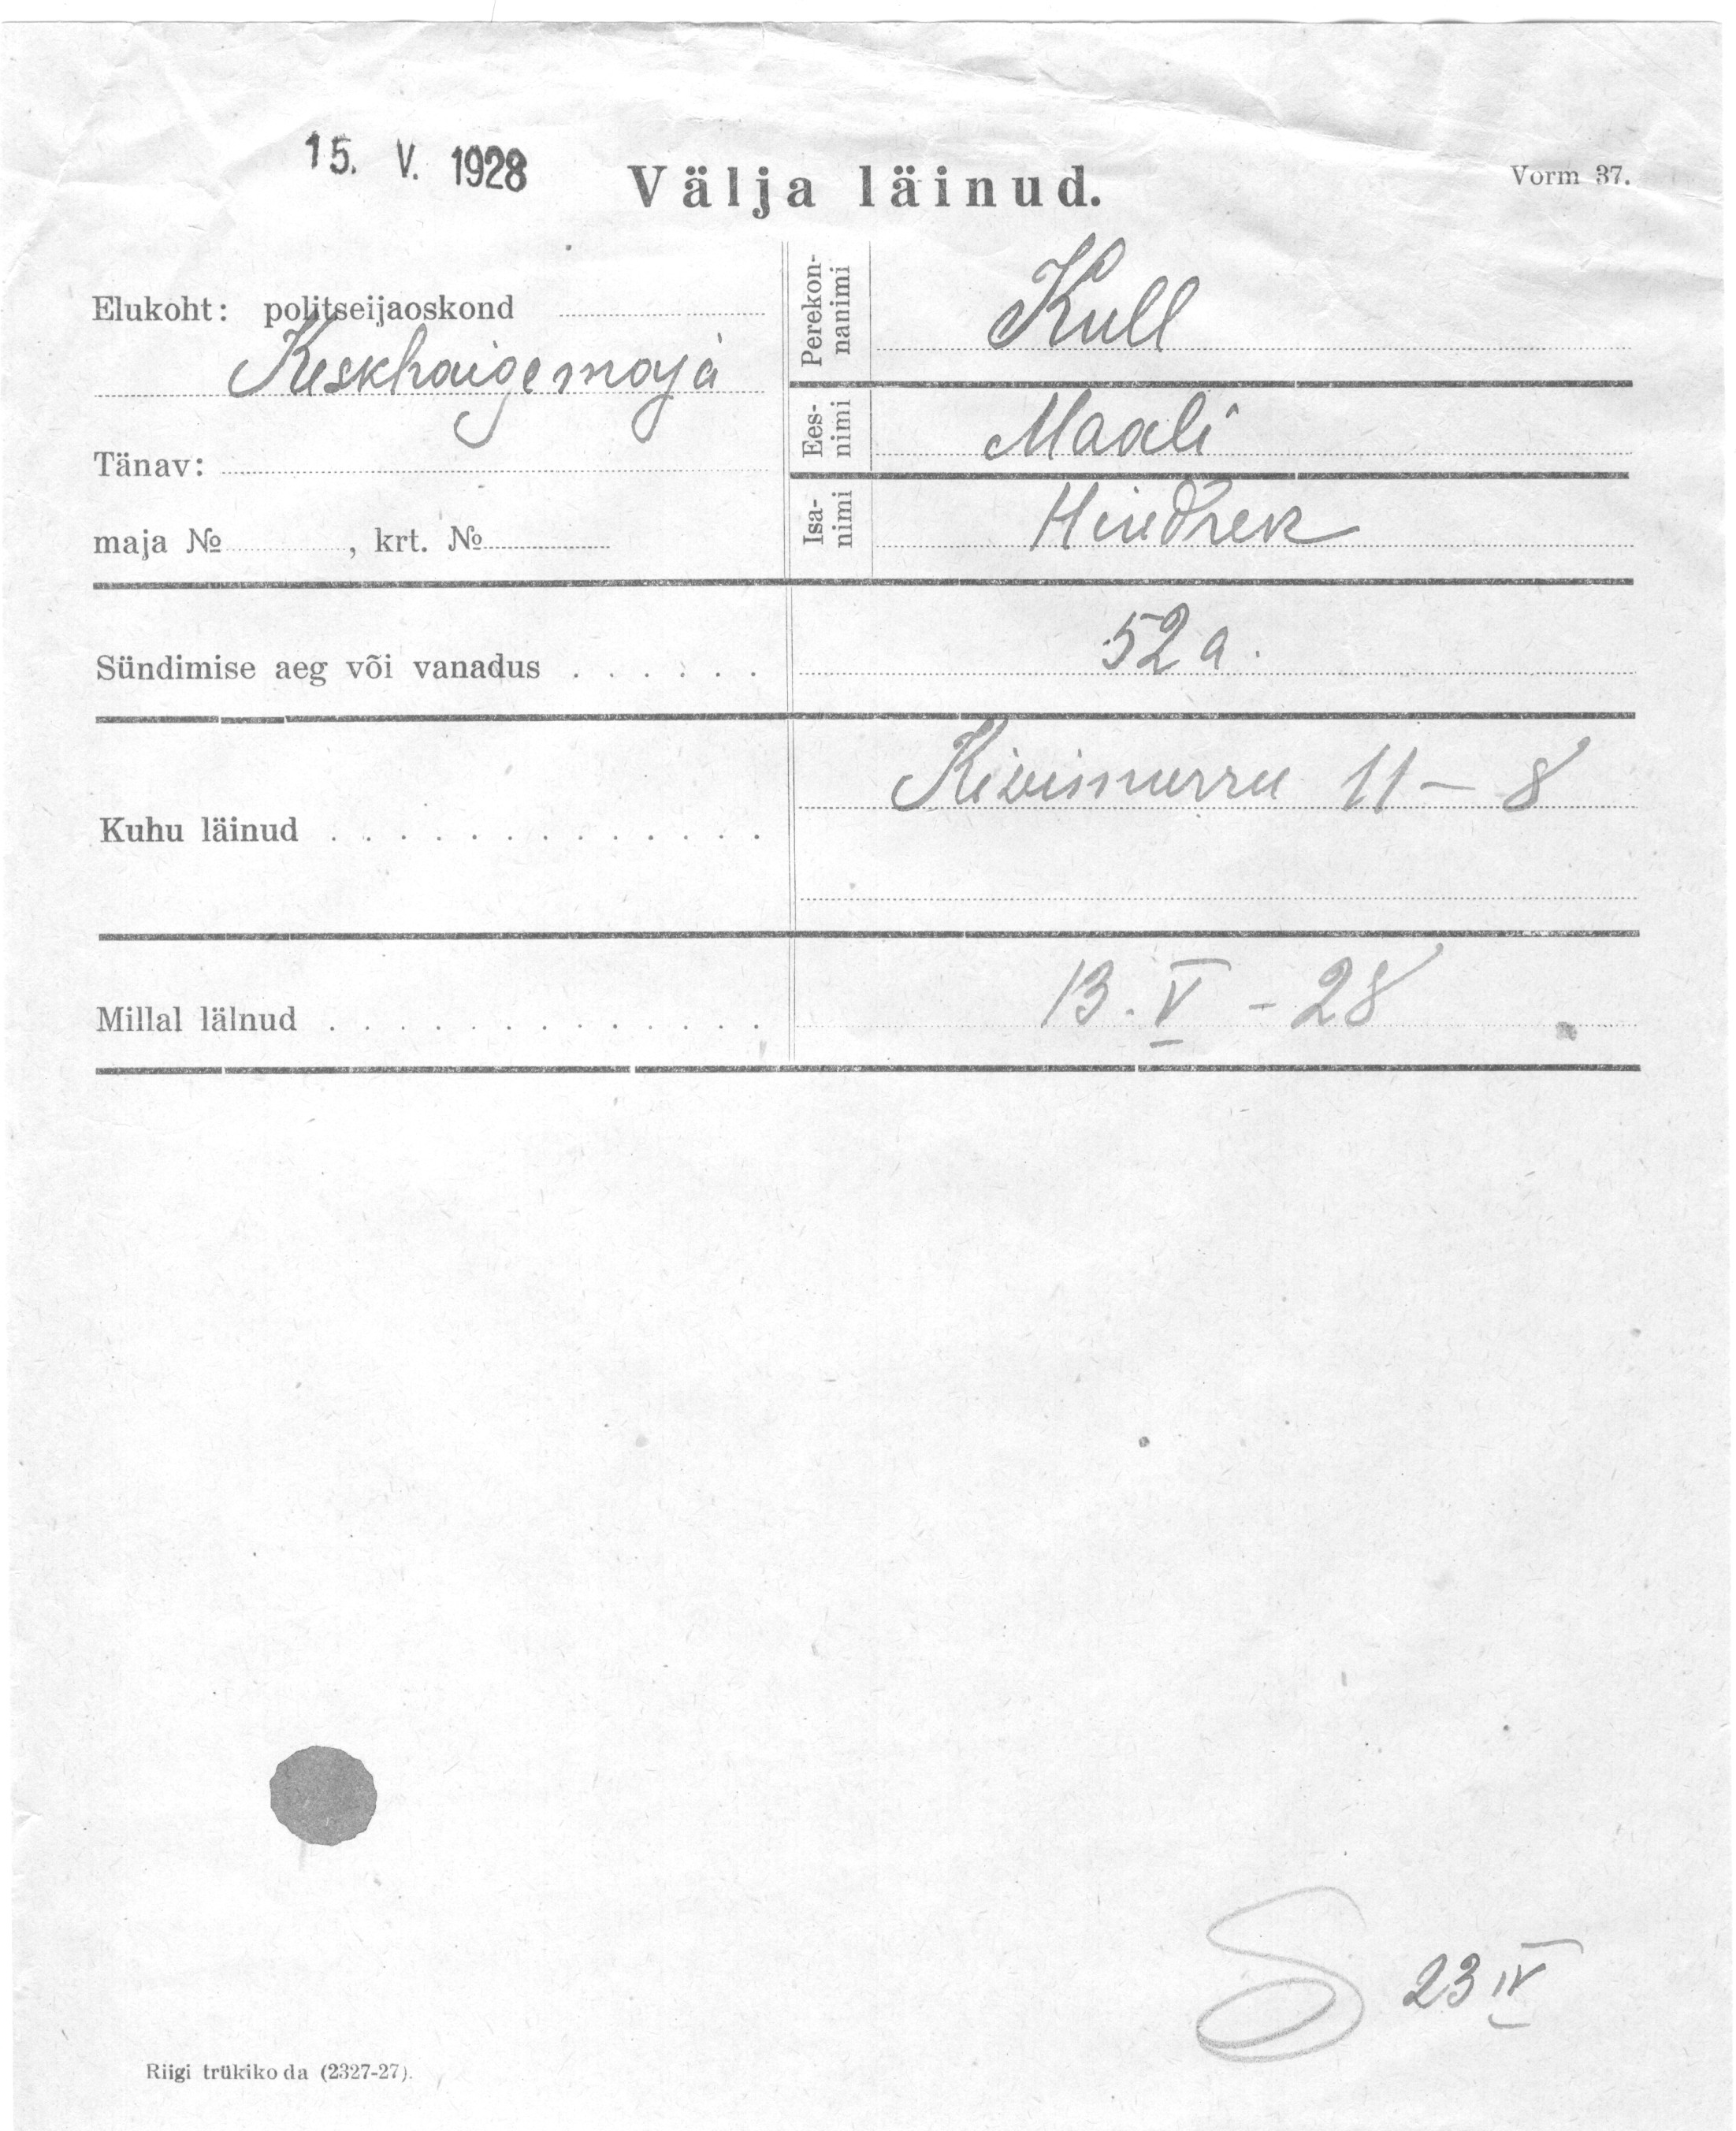 15. V. 1928
Välja läinud.
Vorm 37.
Elukoht: politseijaoskond
Keskhaigemaja
Tänav:
maja № , krt. №
Perekon-
nanimi
Kull
Ees-
nimi
Maali
Isa-
nimi
Hindrek
Sündimise aeg või vanadus . . . . . .
52 a.
Kuhu läinud . . . . . . . . . . . . .
Kivimurru 11 – 8
Millal lälnud . . . . . . . . . . . . .
13. V – 28
23 IV
Riigi trükikoda (2327-27).